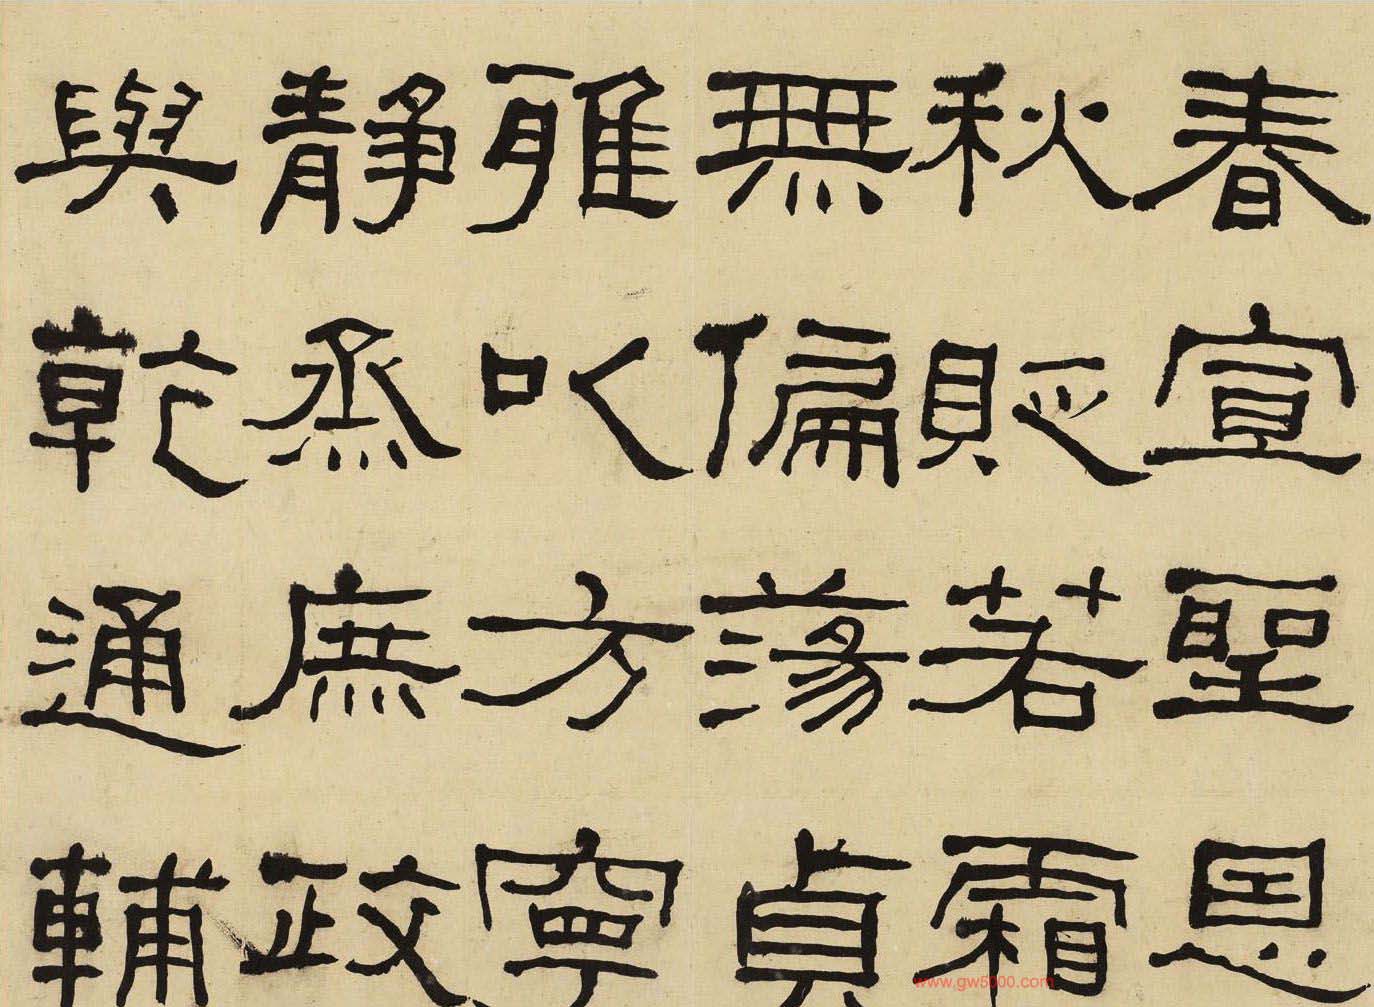 春宣聖恩
秋貶若霜
無偏蕩貞
雅以方寧
靜烝庶政
與乾通輔
www.gw5000.com